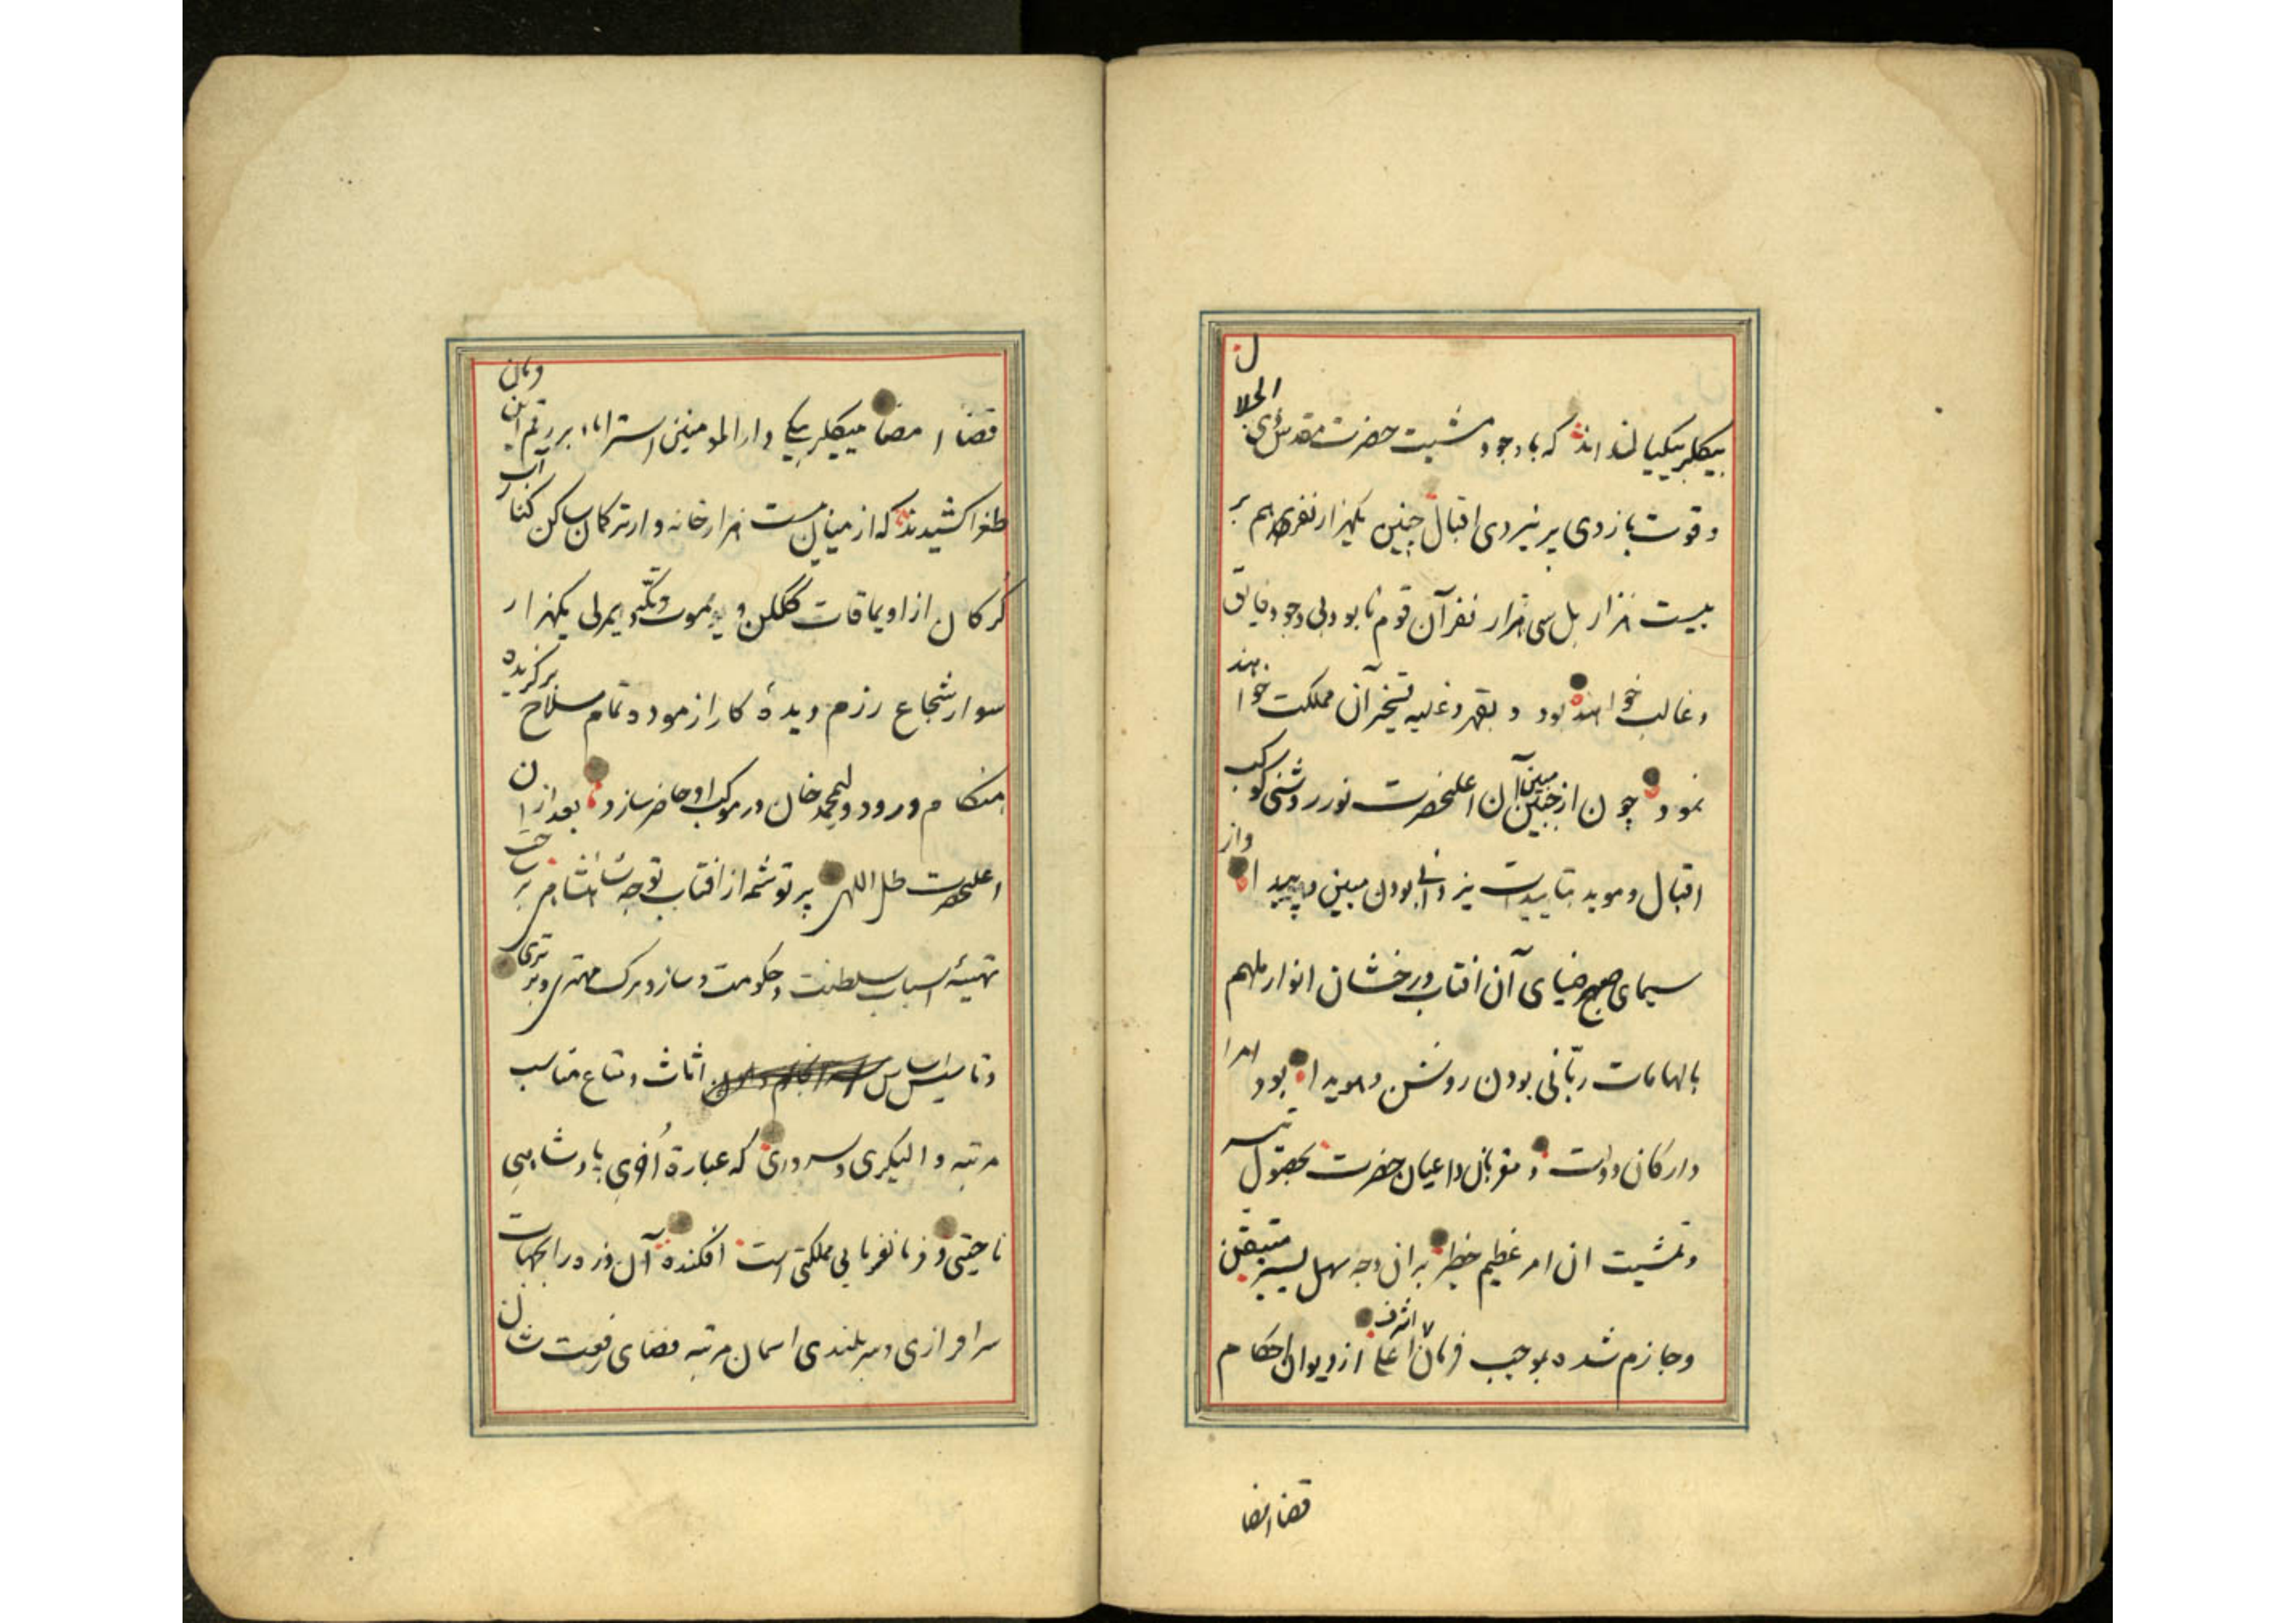 بیکلربیکیان اند که با وجود مشیت حضرت مقدس ذی الجلال
و قوت بازوی پر نیروی اقبال چنین یکهزار نفری هم بر
بیست هزار بل سی هزار نفر آن قوم نابود بی وجود فایق
و غالب خواهند بود و بقهر و غلبه تسخیر آن مملکت خواهند
نمود چون از جبین مبین آن اعلیحضرت نور روشنی کوکب
اقبال و موید بتاییدات یزدانی بودن مبین و پیدا و از
سیمای صبح ضیای آن افتاب درخشان انوار ملهم
بالهامات ربّانی بودن روشن و هویدا بود امرا
و ارکان دولت و مقربان و اعیان حضرت بحصول
و تمشیت ان امر عظیم خطیر بران وجه سهل یسیر متیقن
و جازم شده بموجب فرمان اشرف اعلا از دیوان احکام
قضا امضا
قضا امضا بیکلربیکی دار المومنین استراباد بر رقم این
طغرا کشیدند که از میان بیست هزار خانه وار ترکمان ساکن کنار آب
کرکان از اویماقات ککلن و یموت و تکه و یمرلی یکهزار
سوار شجاع رزم دیدۀ کار ازموده تمام سلاح برکزیده
هنکام ورود ولیمحمد خان در موکب او حاضر سازد بعد از ان
اعلیحضرت ظل اللهی پرتو شمه از افتاب توجه شاهنشاهی بر
تهیئه اسباب سلطنت و حکومت و ساز و برک مهتری و برتری
و تاسیس اساس اثاث و متاع مناسب
مرتبه والیکری و سروری که عبارة اُخری پادشاهیِ
ناحیتی و فرمانفرمایی مملکتی است افکنده آن
سرافرازی و سربلندی اسمان مرتبه فضای رفعت شان